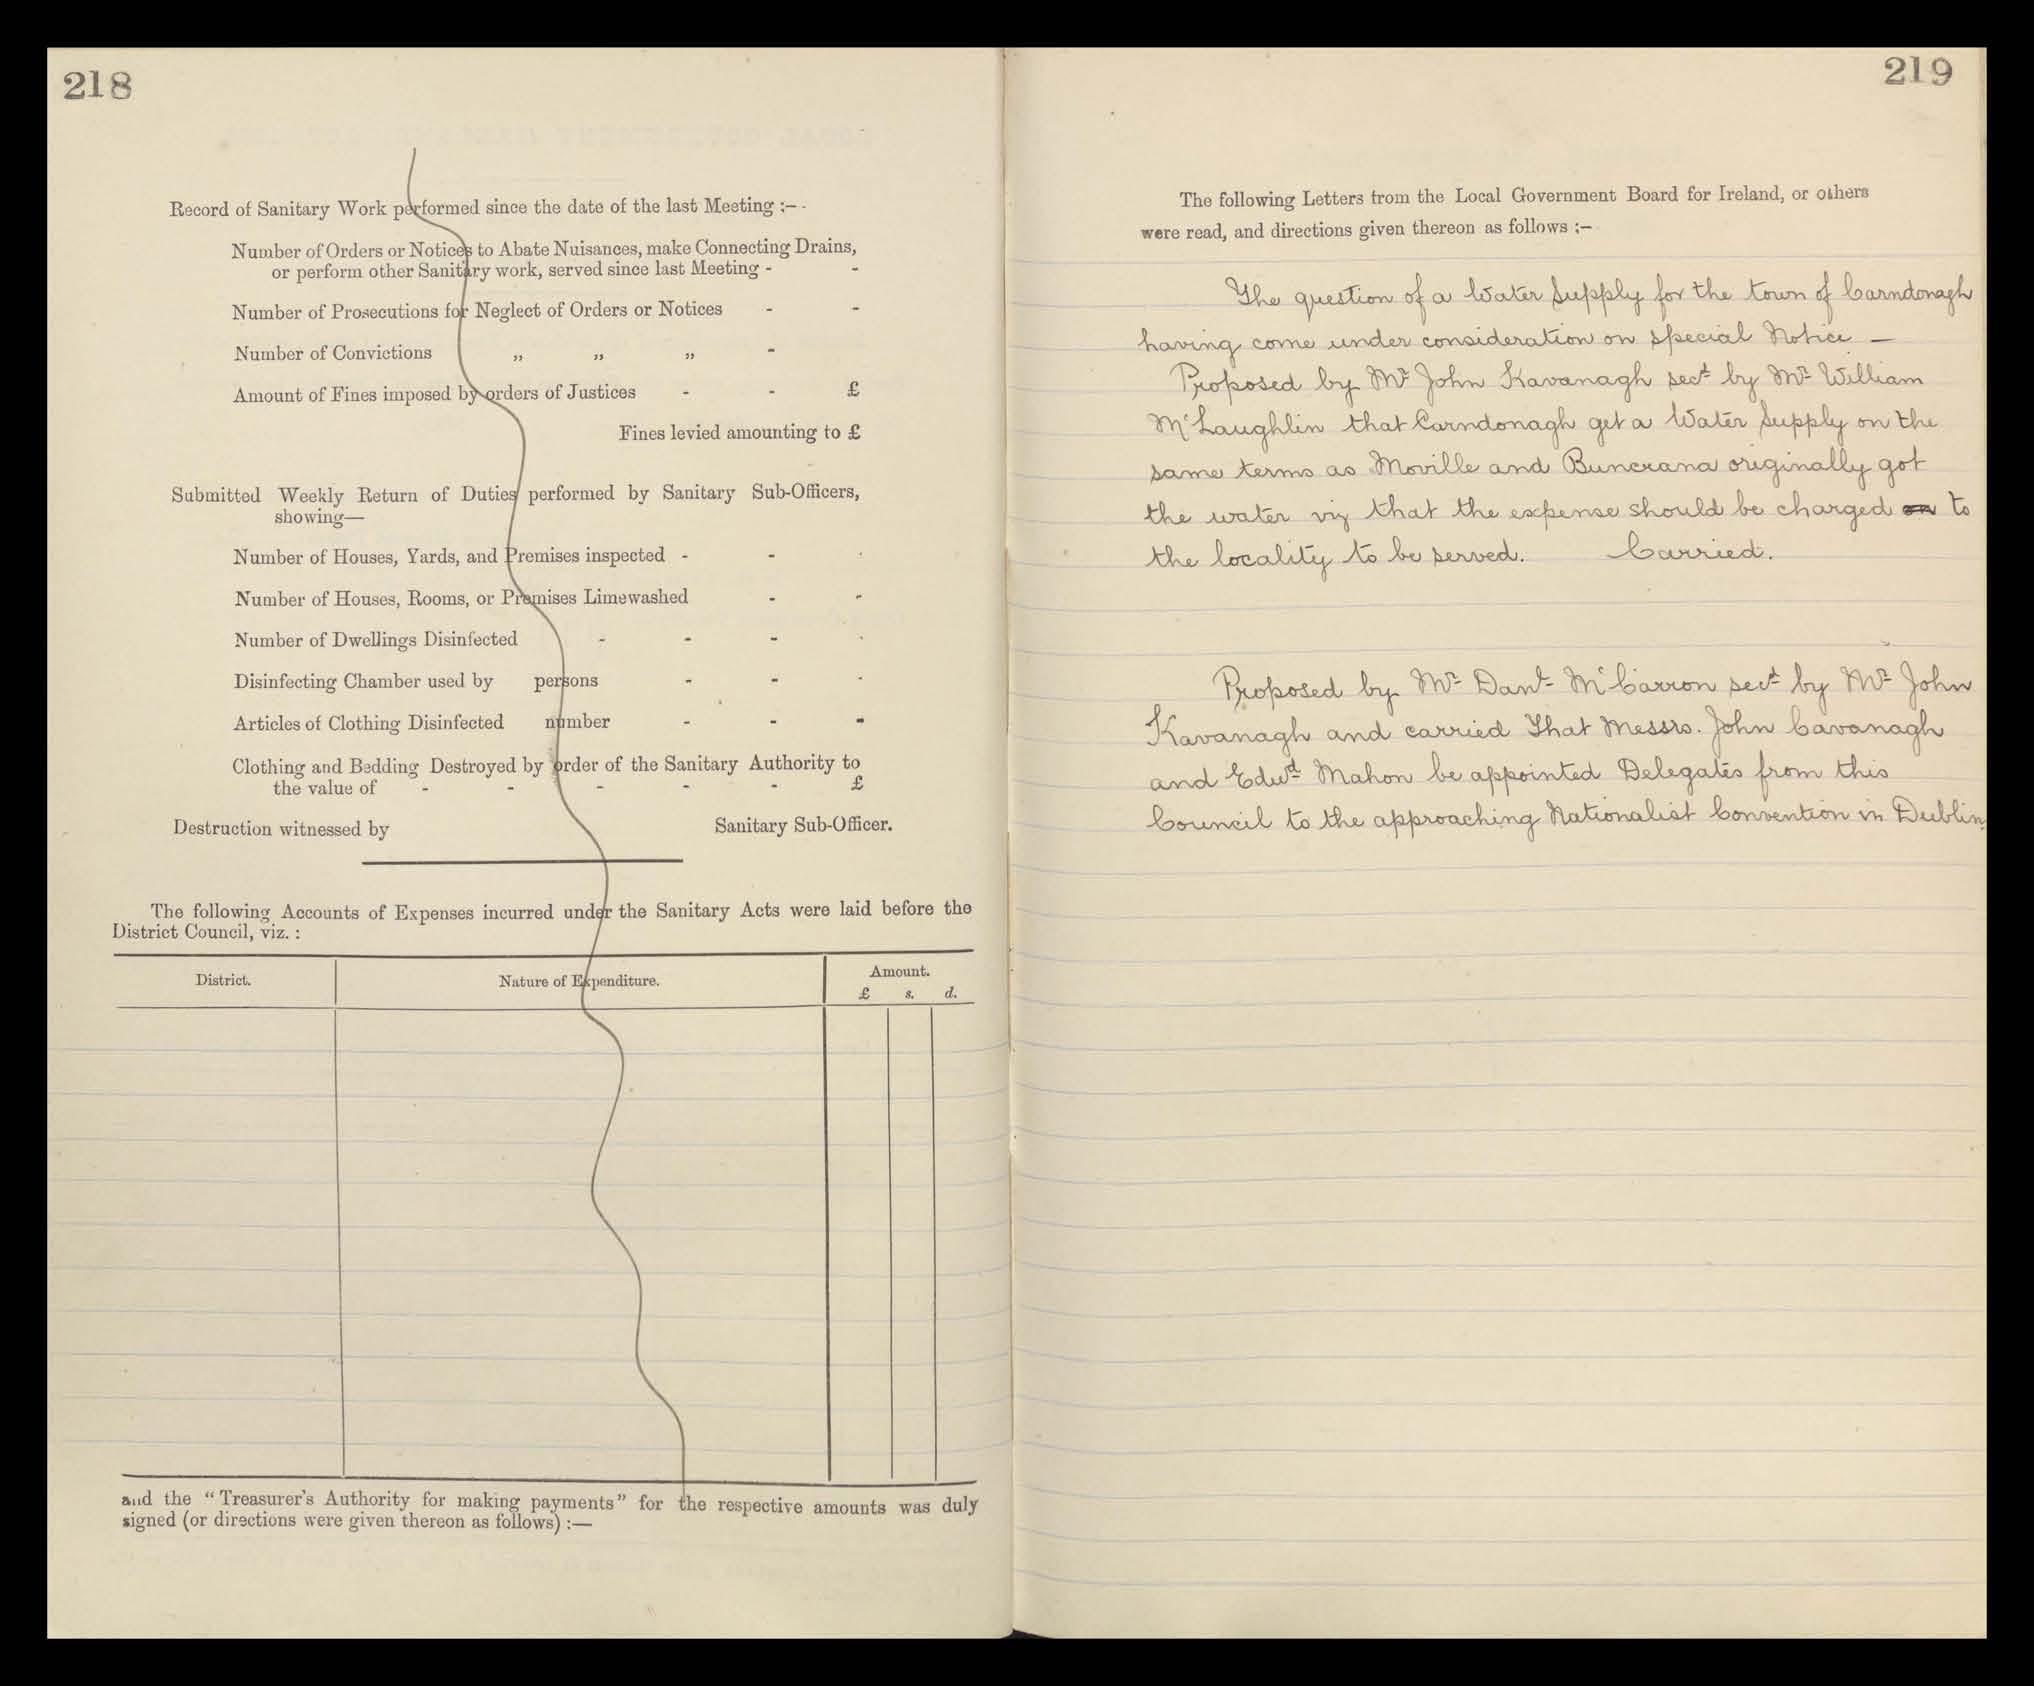 218
Record of Sanitary Work performed since the date of the last Meeting :—
Number of Orders or Notices to Abate Nuisances, make Connecting Drains,
or perform other Sanitary work, served since last Meeting - -
Number of Prosecutions for Neglect of Orders or Notices - -
Number of Convictions „ „ „ -
Amount of Fines imposed by orders of Justices - - £
Fines levied amounting to £
Submitted Weekly Return of Duties performed by Sanitary Sub-Officers,
showing—
Number of Houses, Yards, and Premises inspected - - -
Number of Houses, Rooms, or Premises Limewashed - -
Number of Dwellings Disinfected - - - -
Disinfecting Chamber used by persons - - -
Articles of Clothing Disinfected number - - -
Clothing and Bedding Destroyed by order of the Sanitary Authority to
the value of - - - - - £
Destruction witnessed by Sanitary Sub-Officer.
The following Accounts of Expenses incurred under the Sanitary Acts were laid before the
District Council, viz. :
District. Nature of Expenditure. Amount.
£ s. d.
and the “Treasurer's Authority for making payments” for the respective amounts was duly
signed (or directions were given thereon as follows) :—
219
The following Letters from the Local Government Board for Ireland, or others
were read, and directions given thereon as follows :—
The question of a Water Supply for the town of Carndonagh
having come under consideration on special Notice —
Proposed by Mr John Kavanagh secd by Mr William
McLaughlin that Carndonagh get a Water Supply on the
same terms as Moville and Buncrana originally got
the water viz that the expense should be charged on to
the locality to be served. Carried.
Proposed by Mr Danl McCarron secd by Mr John
Kavanagh and carried That Messrs. John Cavanagh
and Edwd Mahon be appointed Delegates from this
Council to the approaching Nationalist Convention in Dublin.